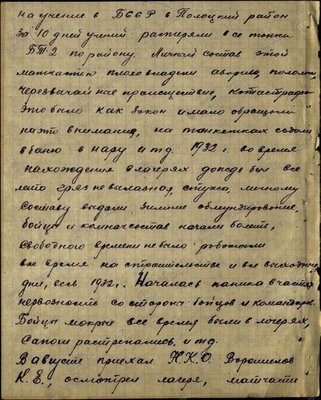 на учение в БССР в Полоцкий район
За 10 дней учений растеряли все танки
БТ-2 по району. Личный состав этой
матчастью плохо владели аварии, поломки,
черезвычайные происшествие, катастрофы
Это было как закон и мало обращали
на это внимания, на танкетках ездили
в баню в наряд и т.д. 1932 г. во время
нахождения в лагерях дождь был все
лето грязь невылазная, стужа, личному
составу выдали зимние обмундирование,
бойцы и комначсостав начали болеть,
свободного времени не было работали
все время на строительстве и все выходные
дни, весь 1932 г. Началась паника в частях
нервозность со стороны бойцов и командиров.
Бойцы мокрые все время были в лагерях,
сапоги растрепались, и т.д.
В августе приехал Н.К.О. Ворошилов
К.Е., осмотрел лагеря, матчасти